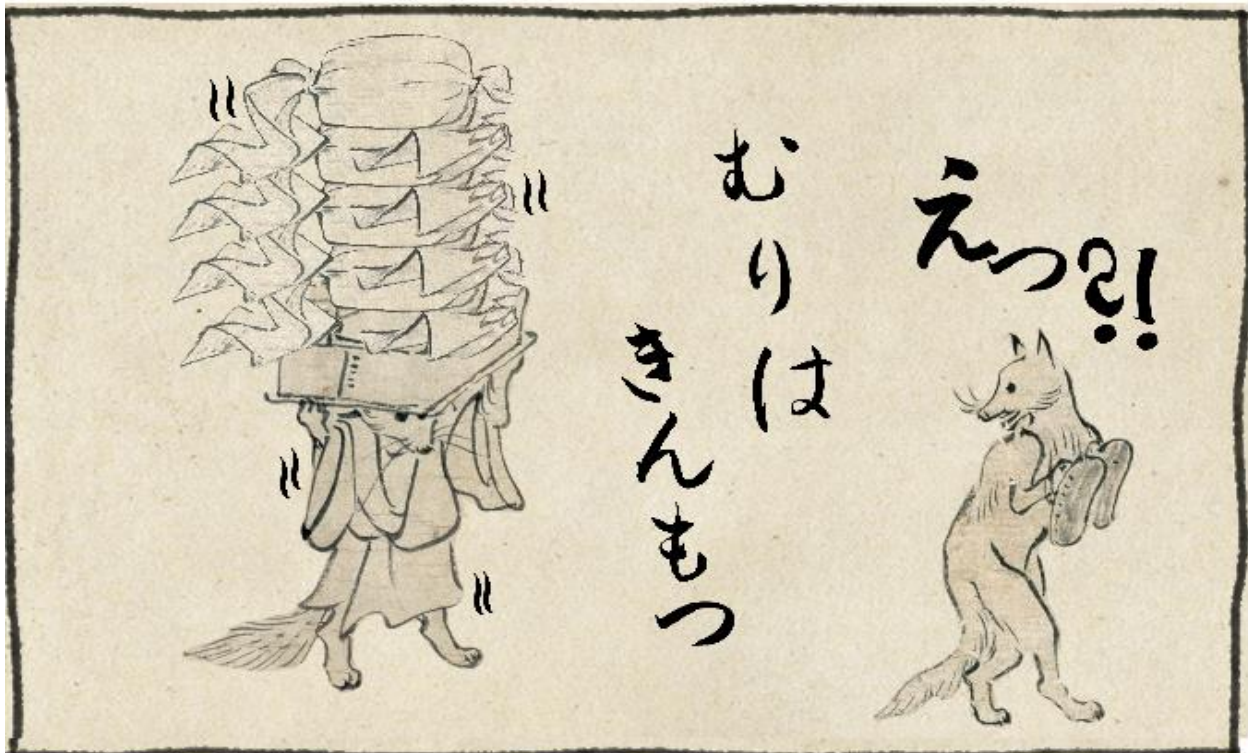 えっ?!
むりは
きんもつ